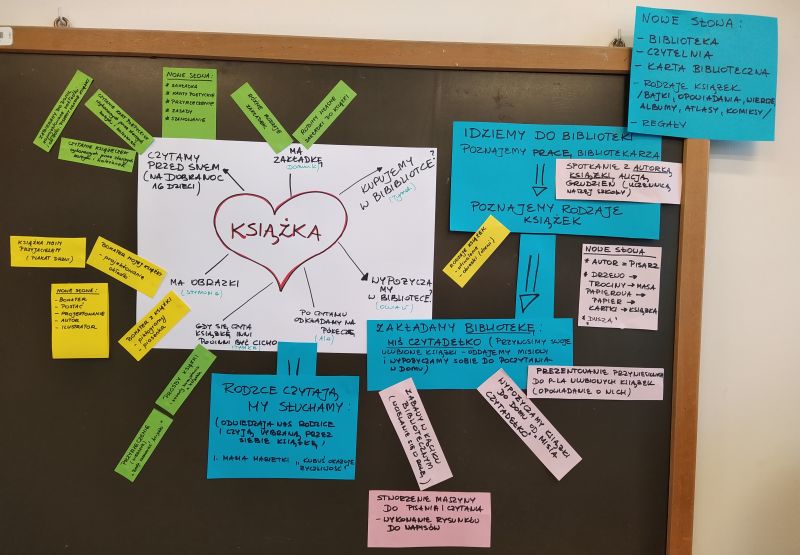 NOWE SŁOWA:
- BIBLIOTEKA
- CZYTELNIA
- KARTA BIBLIOTECZNA
- RODZAJE KSIĄŻEK
/BAJKI, OPOWIADANIA, WIERSZE
ALBUMY, ATLASY, KOMIKSY/
- REGAŁY
NOWE SŁOWA:
* ZAKŁADKA
* KARTY POETYCKIE
* PRZYRZECZENIE
* ZASADY
* SZANOWANIE
RÓŻNE RODZAJE
ZAKŁADEK
ROBIMY WŁASNE
ZAKŁADKI DO KSIĄŻKI
CZYTAMY KSIĄŻECZKI
CZYTAMY
PRZED SNEM
(NA DOBRANOC
16 DZIECI)
MA
ZAKŁADKĘ
(DOMINIK)
KUPUJEMY
W BIBLIOTECE?
(Tymek)
KSIĄŻKA
MA OBRAZKI
(SZYMON)
GDY SIĘ CZYTA
KSIĄŻKĘ INNI
POWINNI BYĆ CICHO
PO CZYTANIU
ODKŁADAMY NA
PÓŁECZKĘ
(ALA)
WYPOŻYCZA
MY
W BIBLIOTECE?
(OLIWIA)
IDZIEMY DO BIBLIOTEKI
POZNAJEMY PRACĘ BIBLIOTEKARZA
SPOTKANIE Z AUTORKĄ
KSIĄŻKI, ALICJĄ
GRUDZIEŃ (UCZENNICĄ
NASZEJ SZKOŁY)
POZNAJEMY RODZAJE
KSIĄŻEK
RODZAJE KSIĄŻEK
NOWE SŁOWA
* AUTOR = PISARZ
* DRZEWO →
TROCINY → MASA
PAPIEROWA →
PAPIER →
KARTKI → KSIĄŻKA
* "DUSZA"
KSIĄŻKA MOIM
PRZYJACIELEM
(PLAKAT DZIECI)
BOHATER MOJEJ KSIĄŻKI
- projektowanie
okładki
NOWE SŁOWA:
- BOHATER
- POSTAĆ
- PROJEKTOWANIE
- AUTOR
- ILUSTRATOR
BOHATER Z KSIĄŻKI
PROŚBY KSIĄŻKI
PRZYRZECZENIE
ZAKŁADAMY BIBLIOTEKĘ:
MIŚ CZYTADEŁKO (PRZYNOSIMY SWOJE
ULUBIONE KSIĄŻKI - ODDAJEMY MISIOWI
I WYPOŻYCZAMY SOBIE DO POCZYTANIA
W DOMU)
PREZENTOWANIE PRZYNIESIONYCH
DO P-LA ULUBIONYCH KSIĄŻEK
(OPOWIADANIE O NICH)
RODZICE CZYTAJĄ,
MY SŁUCHAMY:
(ODWIEDZAJĄ NAS RODZICE
I CZYTAJĄ, WYBRANĄ, PRZEZ
SIEBIE KSIĄŻKĘ)
1. MAMA "KUBUŚ OKAZUJE
ŻYCZLIWOŚĆ"
ZABAWY W KĄCIKU
BIBLIOTECZNYM
WYPOŻYCZAMY KSIĄŻKI
DO DOMU OD "MISIA
CZYTADEŁKO"
STWORZENIE MASZYNY
DO PISANIA I CZYTANIA
- WYKONANIE RYSUNKÓW
DO NAPISÓW